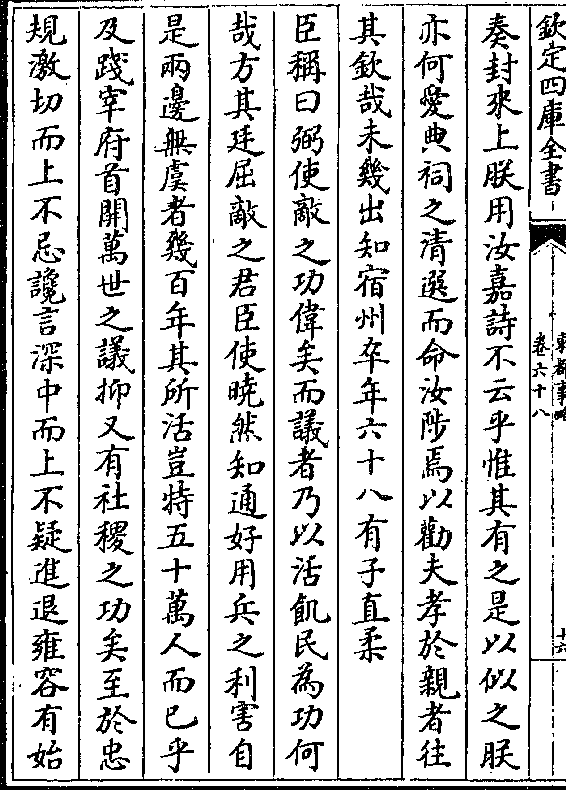 欽定四庫全書
東都事略
卷六十八
十六
奏封來上朕用汝嘉詩不云乎惟其有之是以似之朕
亦何愛典祠之清選而命汝陟焉以勸夫孝於親者往
其欽哉未幾出知宿州卒年六十八有子直柔
臣稱曰弼使敵之功偉矣而議者乃以活飢民為功何
哉方其廷屈敵之君臣使曉然知通好用兵之利害自
是兩邊無虞者幾百年其所活豈特五十萬人而已乎
及踐宰府首開萬世之議抑又有社稷之功矣至於忠
規激切而上不忌讒言深中而上不疑進退雍容有始